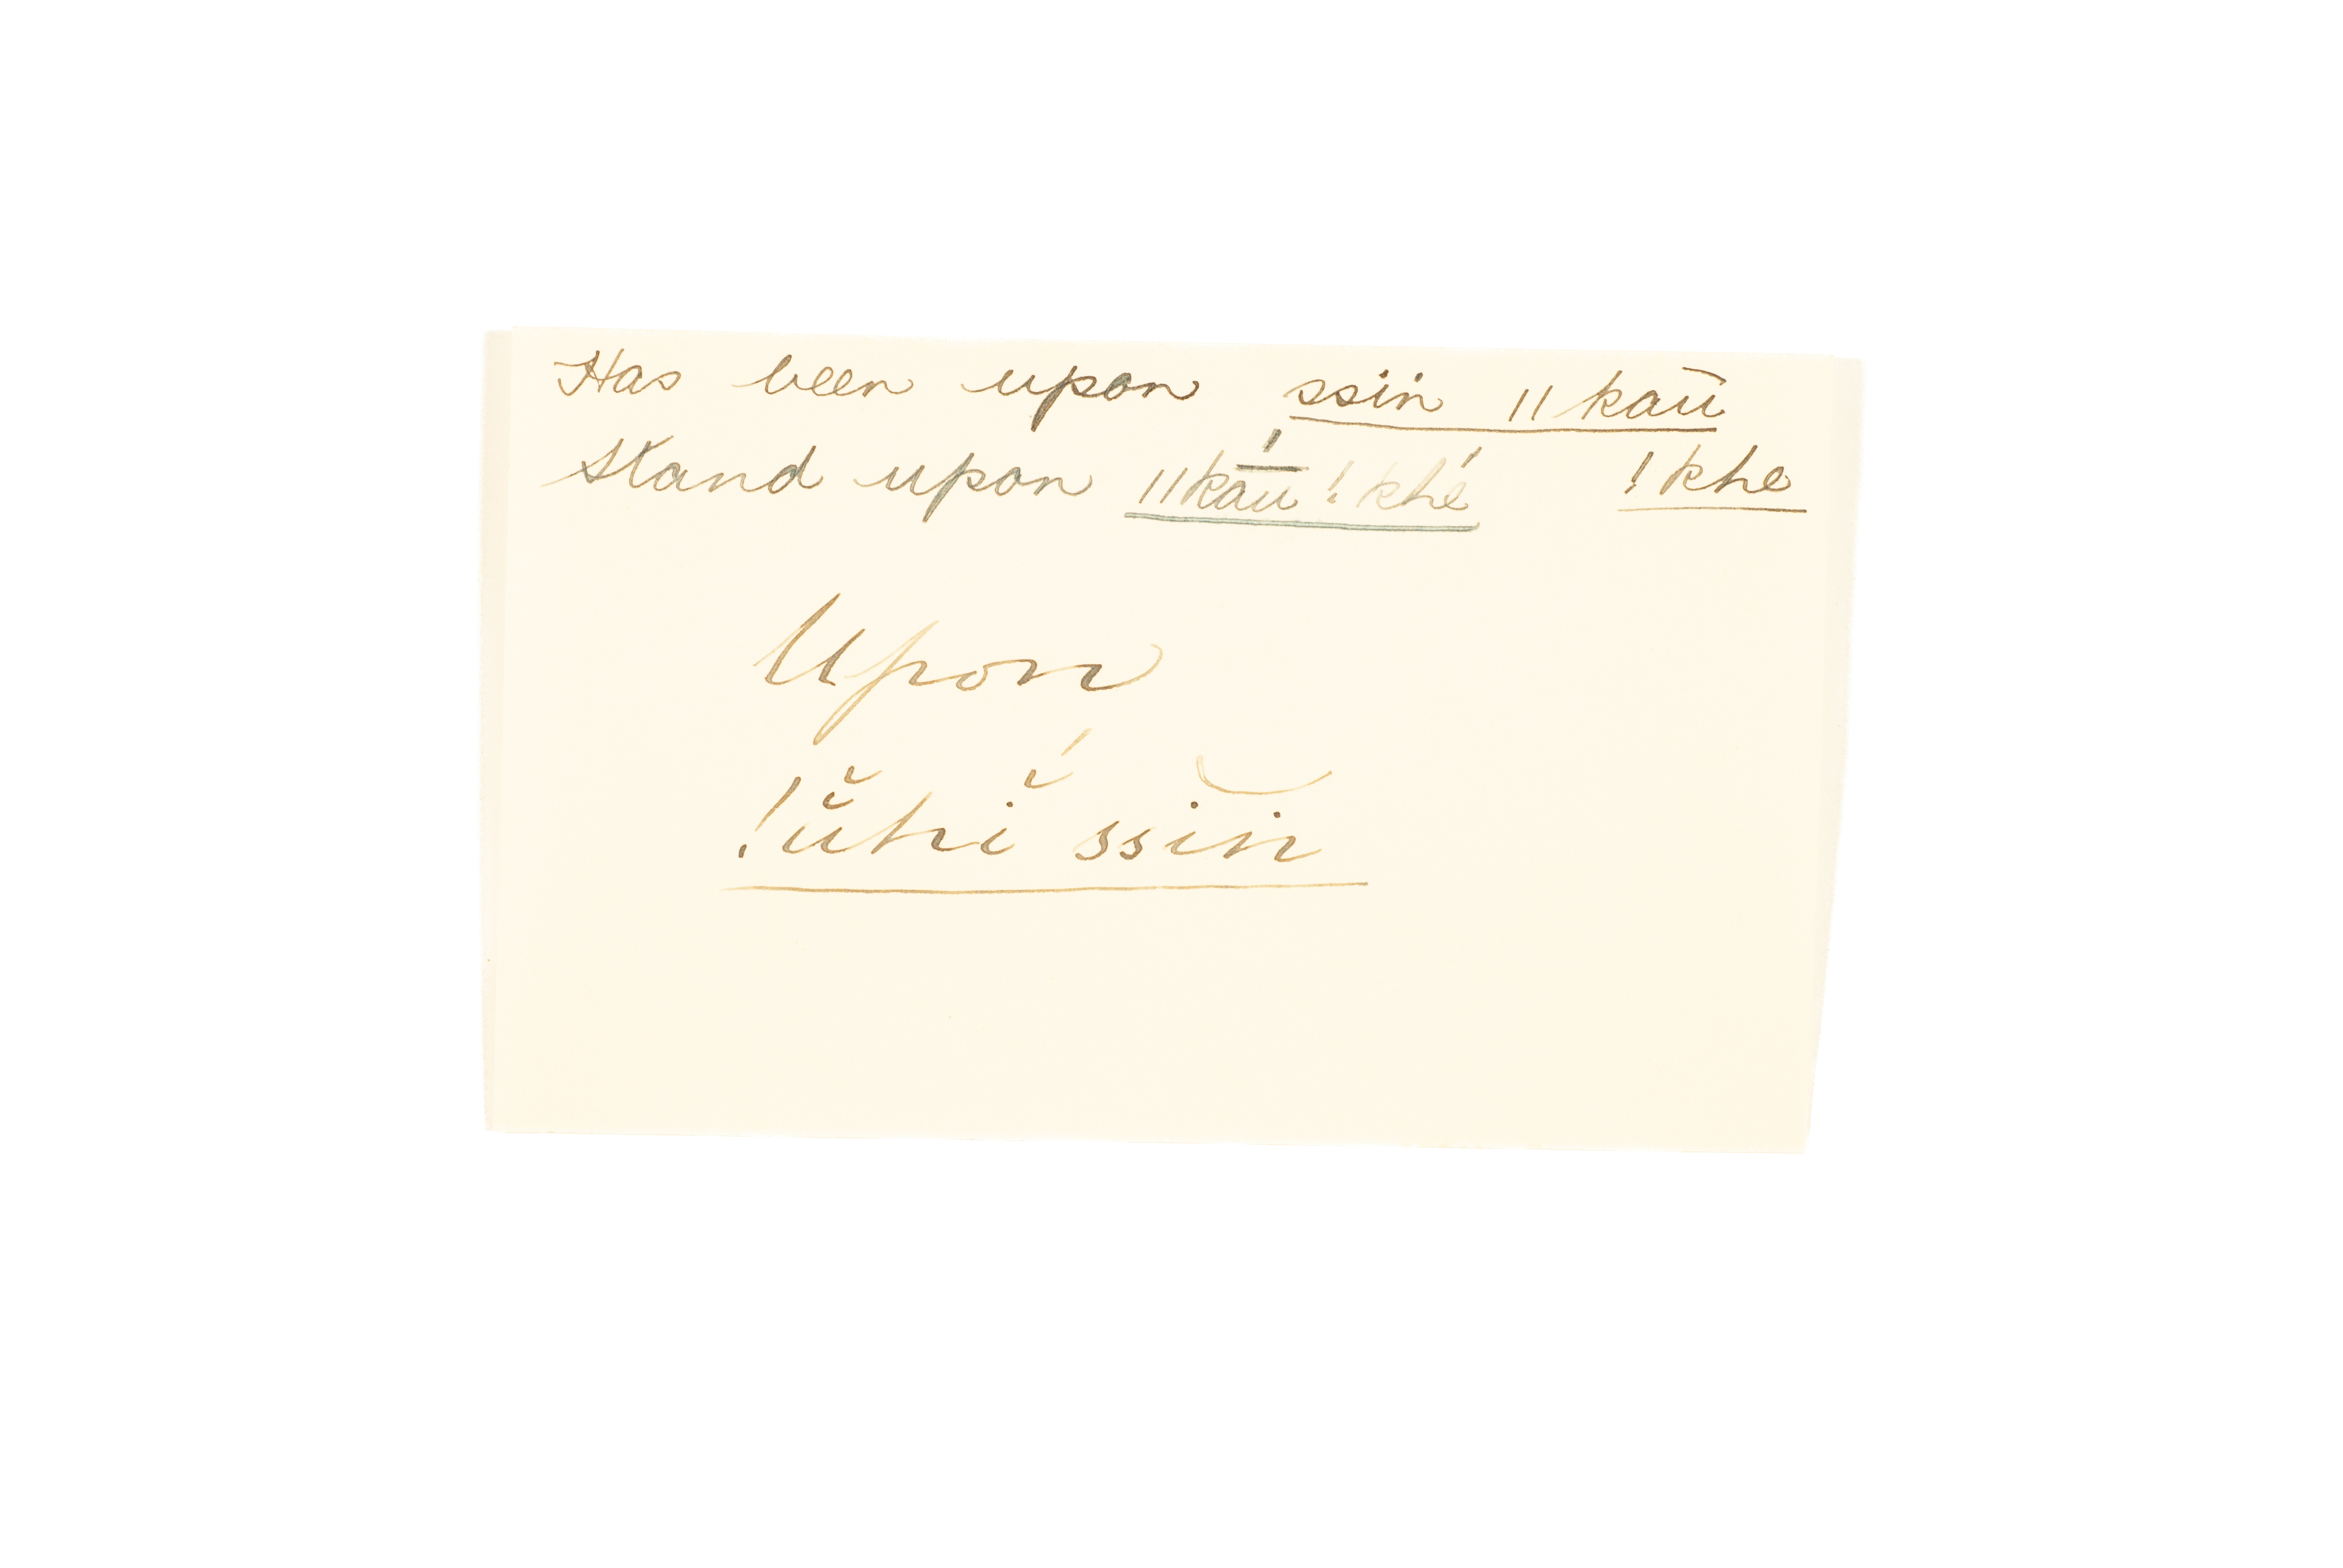 Has been upon ssin ǁkaū
Stand upon ǁkā́u !khé !khe
Upon
!ŭ̆hĭ́ ssin̆